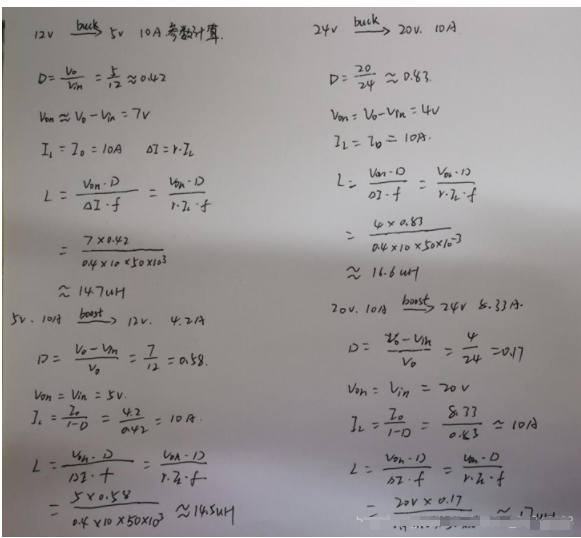 12V buck→ 5V 10A 参数计算.
D = Vo/Vin = 5/12 ≈ 0.42
Von ≈ Vo - Vin = 7V
IL = Io = 10A ΔI = r·IL
L = Von·D / ΔI·f = Von·D / r·IL·f
= 7×0.42 / 0.4×10×50×10³
≈ 14.7uH
5V. 10A boost→ 12V. 4.2A
D = Vo-Vin / Vo = 7/12 = 0.58.
Von = Vin = 5V.
IL = Io / 1-D = 4.2 / 0.42 = 10A.
L = Von·D / ΔI·f = Von·D / r·IL·f
= 5×0.58 / 0.4×10×50×10³ ≈ 14.5uH
24V buck→ 20V. 10A
D = 20/24 ≈ 0.83.
Von = Vo - Vin = 4V
IL = Io = 10A.
L = Von·D / ΔI·f = Von·D / r·IL·f
= 4×0.83 / 0.4×10×50×10⁻³
≈ 16.6uH
20V. 10A boost→ 24V 8.33A.
D = Vo-Vin / Vo = 4/24 = 0.17
Von = Vin = 20V
IL = Io / 1-D = 8.33 / 0.83 ≈ 10A
L = Von·D / ΔI·f = Von·D / r·IL·f
= 20V×0.17 / ≈ 17uH